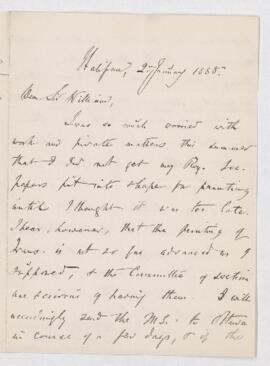 Halifax, 2 January 1888.
Dear Sir William,
I was so much worried with
work and private matters this summer
that I did not get my Roy. Soc.
papers put into shape for printing
until I thought it was too late.
I hear, however, that the printing of
Trans. is not so far advanced as I
supposed, & the Committee of section
are desirous of having them. I will
accordingly send the M.S. to Ottawa
in course of a few days, & if this